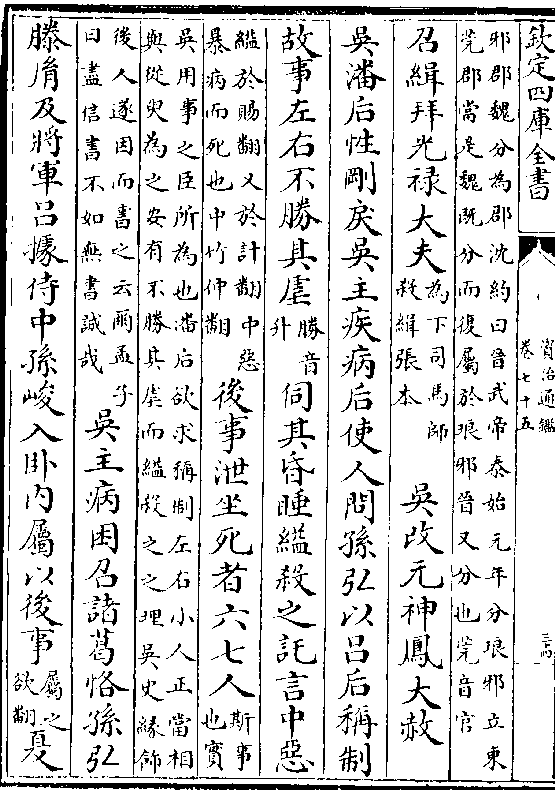 欽定四庫全書
資治通鑑
卷七十五
邪郡魏分為郡沈約曰晉武帝泰始元年分琅邪立東
莞郡當是魏既分而復屬於琅邪晉又分也莞音官
召緝拜光禄大夫為下司馬師殺緝張本 吳改元神鳳大赦
吳潘后性剛戾吳主疾病后使人問孫弘以吕后稱制
故事左右不勝其虐勝音升伺其昏睡縊殺之託言中惡
縊於賜翻又於計翻中惡暴病而死也中竹仲翻後事泄坐死者六七人斯事也實
吳用事之臣所為也潘后欲求稱制左右小人正當相
與從臾為之安有不勝其虐而縊殺之之理吳史緣飾
後人遂因而書之云爾孟子曰盡信書不如無書誠哉 吳主病困召諸葛恪孫弘
滕胤及將軍吕據侍中孫峻入卧内屬以後事屬之欲翻夏